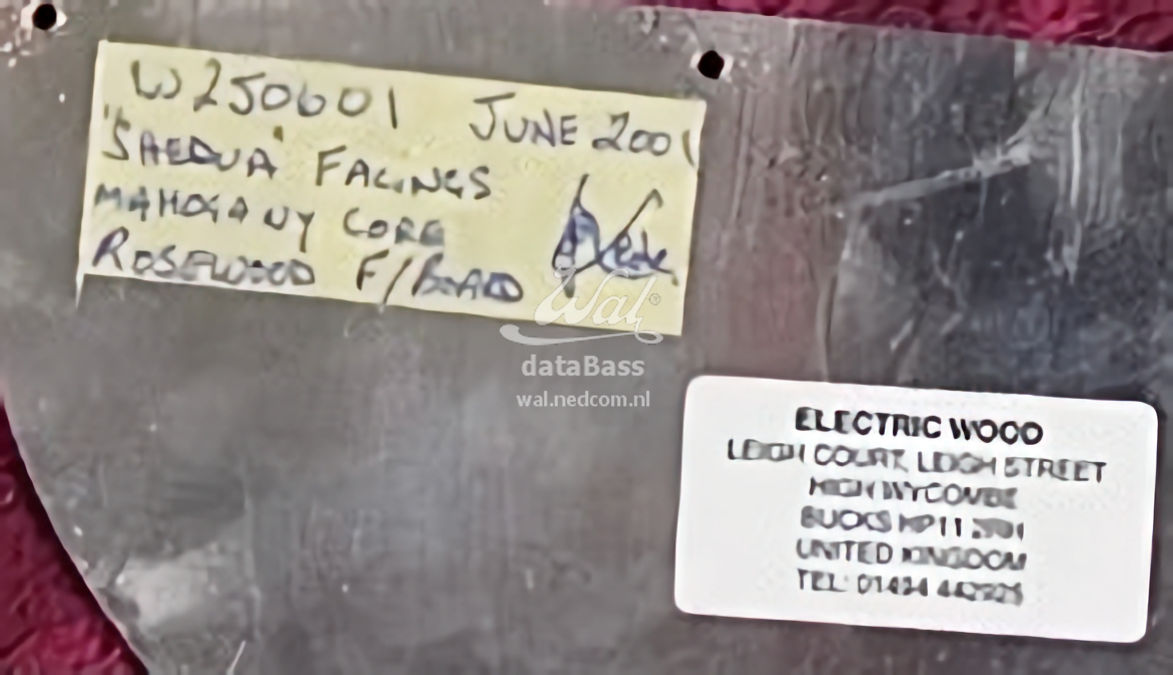 W250601 JUNE 2001
'SHEDUA' FACINGS
MAHOGANY CORE
ROSEWOOD F/BOARD
Wal®
dataBass
wal.nedcom.nl
ELECTRIC WOOD
LEIGH COURT, LEIGH STREET
HIGH WYCOMBE
BUCKS HP11
UNITED KINGDOM
TEL: 01494